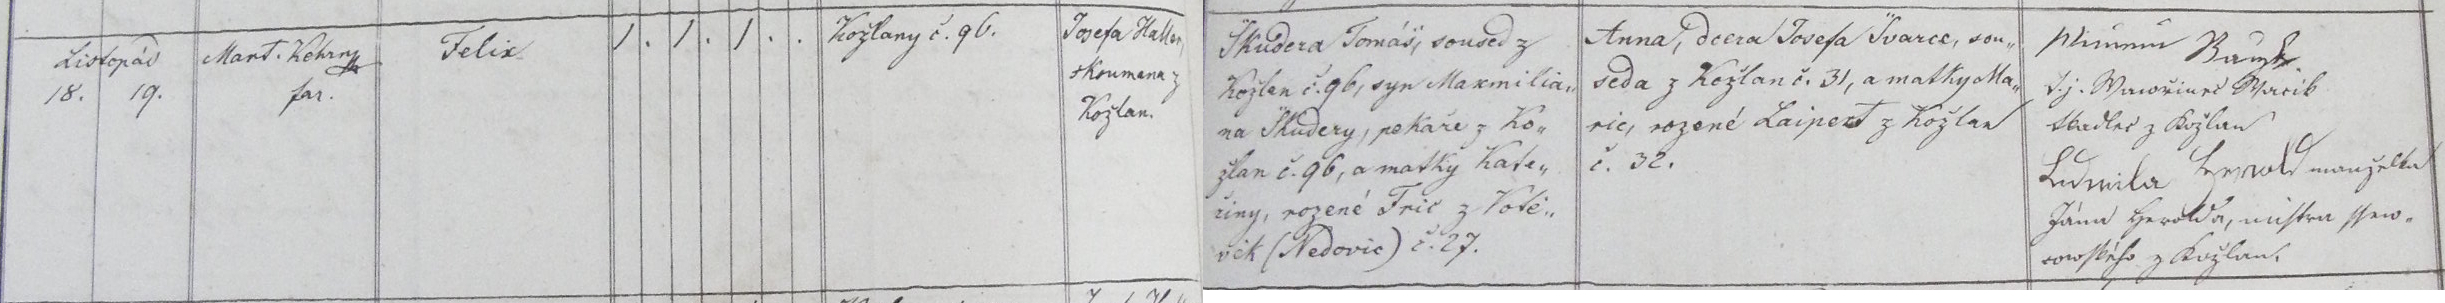 Listopád
18. 19.
Mart. Kehrn
far.
Felix
1. 1. 1. .
Kožlany č. 96.
Josefa Haller,
zkoumana z
Kožlan.
Škudera Tomáš, soused z
Kožlan č. 96, syn Maxmilia„
na Škudery, pekaře z Ko„
žlan č. 96, a matky Kate„
řiny, rozené Fric z Votě„
věk (Nedovic) č. 27.
Anna, dcera Josefa Švarce, sou„
seda z Kožlan č. 31, a matky Ma„
rie, rozené Laipert z Kožlan
č. 32.
t. j. Wawřinec
tkadlec z Kožlan
Ludmila Herold manželka
Jána Herolda, mistra ssew„
cowského z Kožlan.